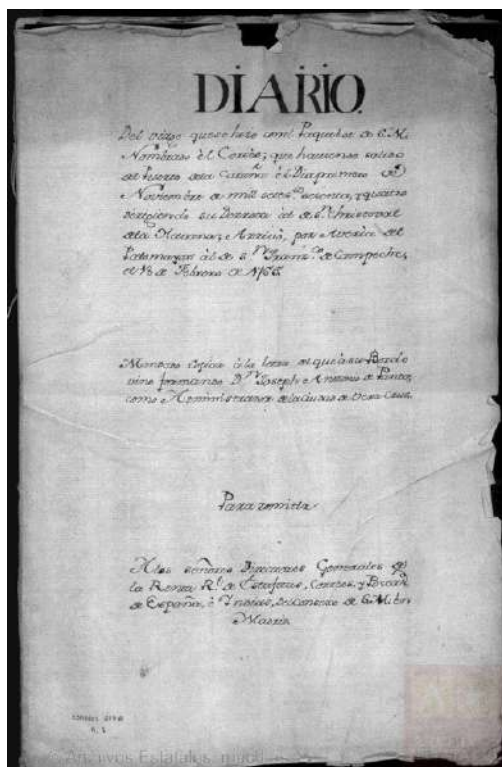 DIARIO.
Del viage que se hizo con el Paquebot de S. M.
Nombrado el Cortés; que haviendo salido
del Puerto de la Coruña el Dia primero de
Noviembre de mil setec.s sesenta, y quatro
dirigiendo su Derrota al de S.n Christoval
de la Havana, Arrivó, por Averia del
Palo mayor al de S.n Fran.co de Campeche,
el 18 de Febrero de 1765.
Mandado Copiar à la letra del que à su Bordo
vino formando D.n Joseph Antonio de
como Administrador de la Ciudad de Vera Cruz
Para remitir
A los señores Directores Generales de
la Renta R.l de Estafetas, Correos, y
de España, è Yndias, del Consejo de S. M. en
Madrid